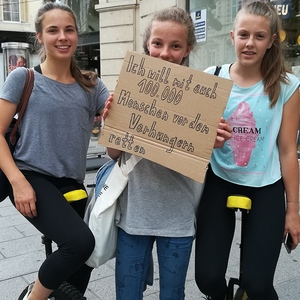 NEU
Ich will mit euch
100.000
Menschen vor dem
Verhungern
retten
ICE CREAM